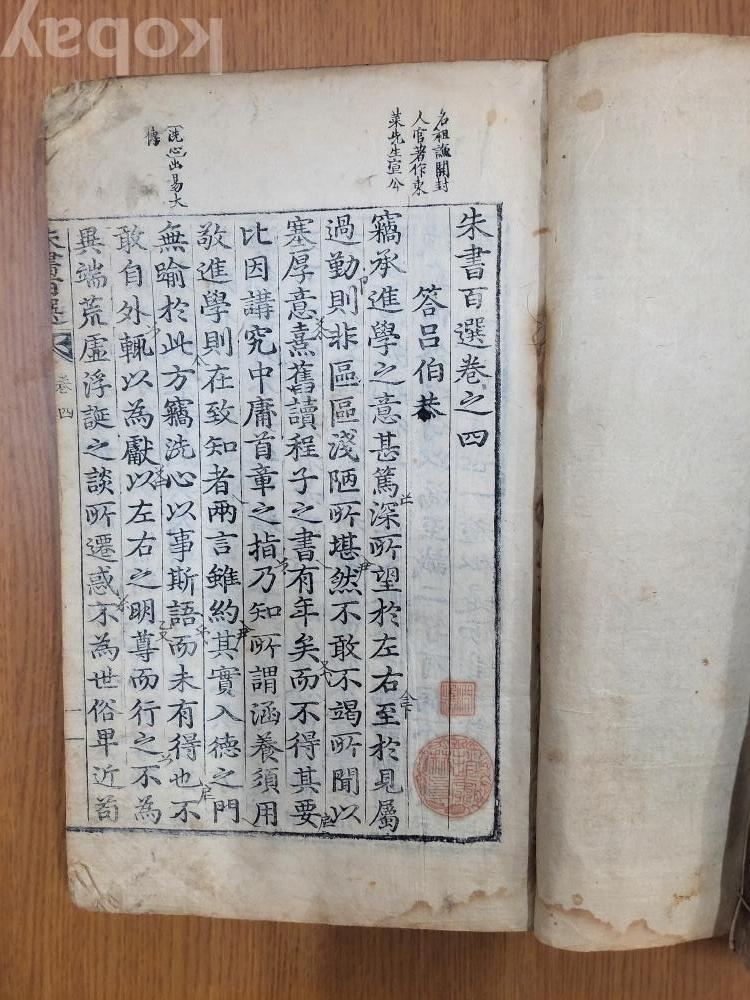 kobay
名祖謙開封
人官著作東
萊先生宣公
朱書百選卷之四
答呂伯恭
竊承進學之意甚篤深所望於左右至於見屬
過勤則非區區淺陋所堪然不敢不竭所聞以
塞厚意熹舊讀程子之書有年矣而不得其要
比因講究中庸首章之指乃知所謂涵養須用
敬進學則在致知者兩言雖約其實入德之門
洗心出易大
傳
無踰於此方竊洗心以事斯語而未有得也不
敢自外輒以為獻以左右之明尊而行之不為
異端荒虛浮誕之談所遷惑不為世俗卑近苟
朱書百選 卷四 一